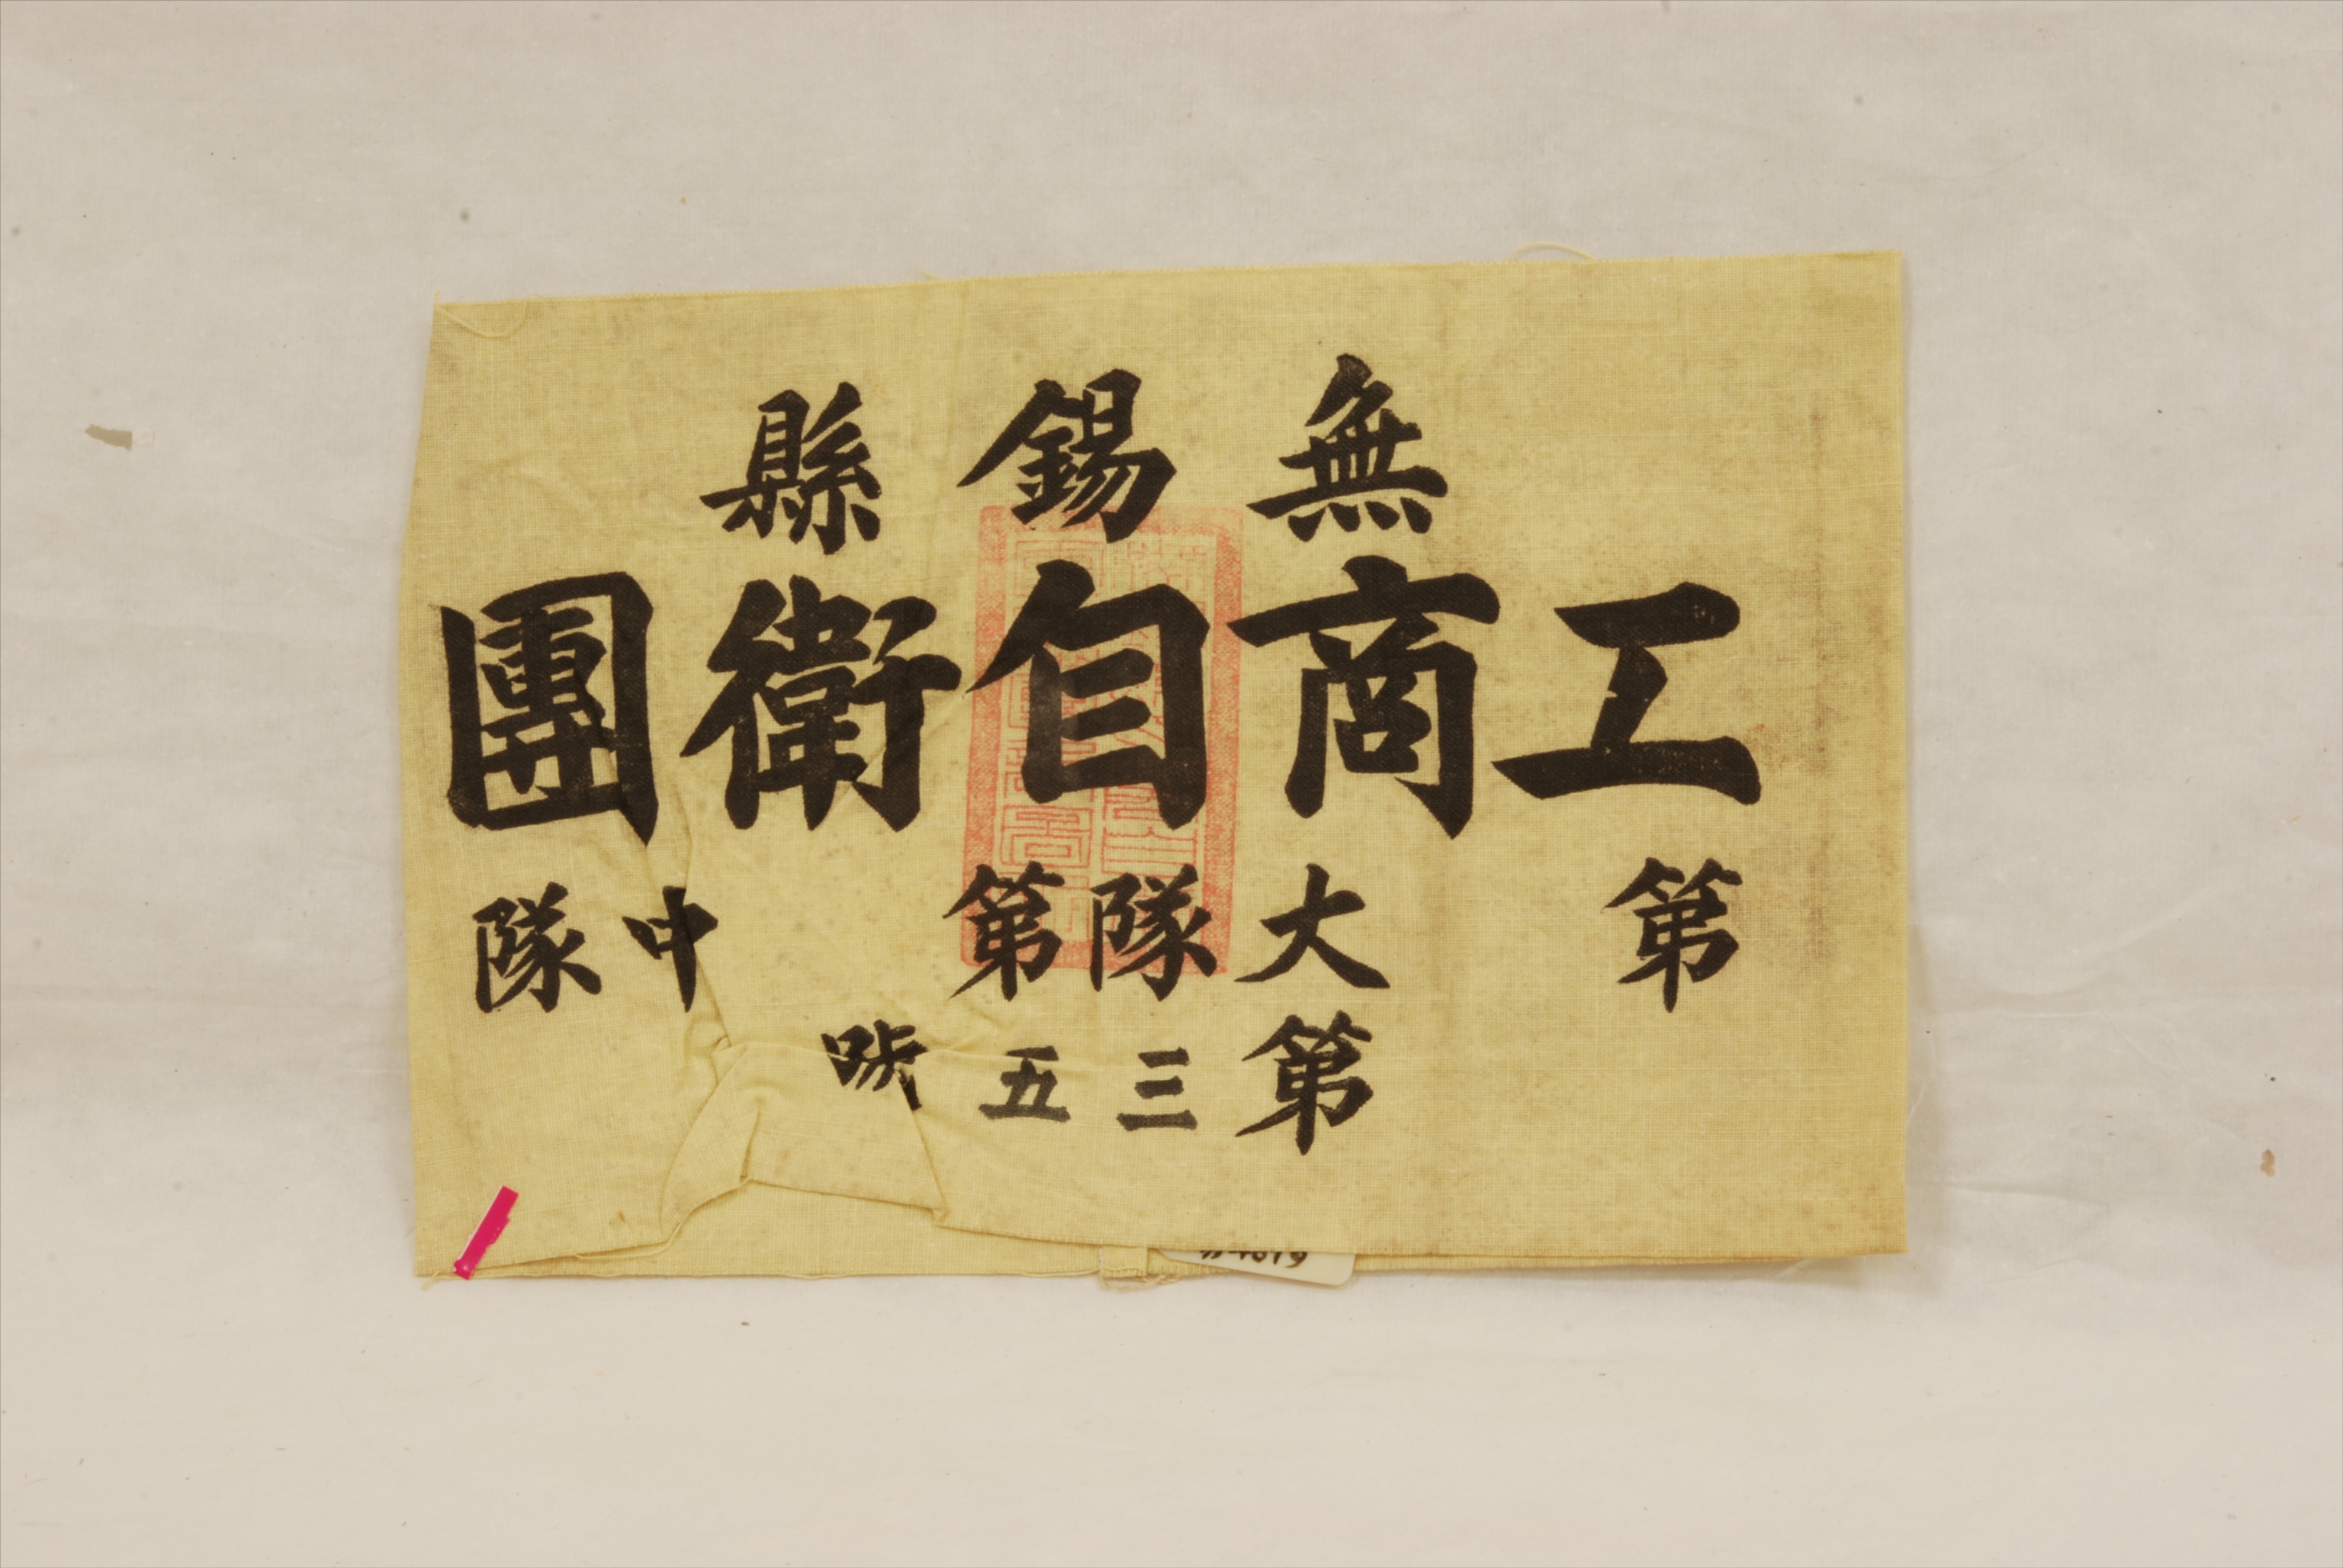 無錫縣
工商自衛團
第 大隊第 中隊
第三五號